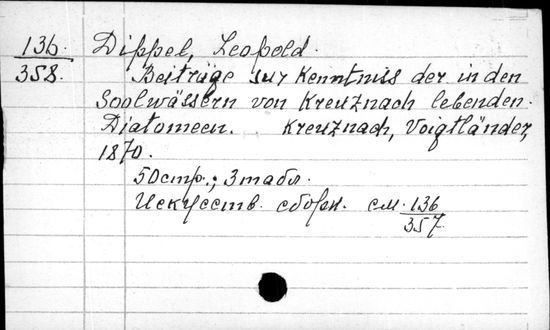 136. Dippel, Leopold.
358. Beiträge zur Kenntniss der in den
Soolwässern von Kreuznach lebenden
Diatomeen. Kreuznach, Voigtländer,
1870.
50стр.; 3табл.
Искусств. сборн. см. 136
357.